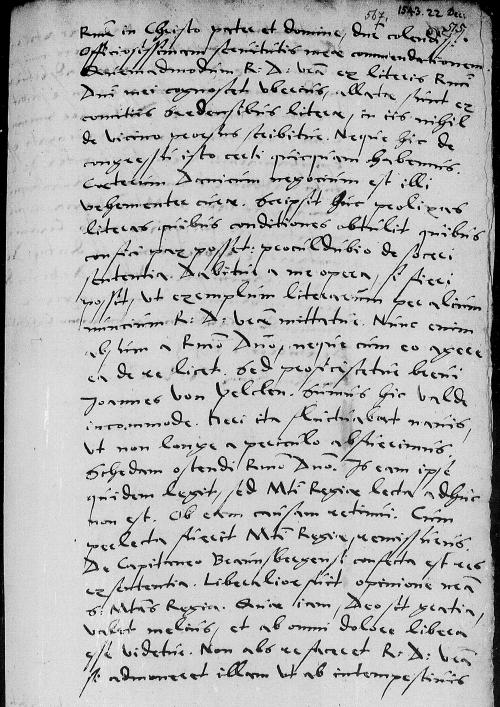 567. 1543. 22 Dec.
Rme in Christo pater et domine, dne colendissime.
Officiosissimam servitutis mee commendationem.
Quemadmodum R: D: vra ex literis Rmi
Dni mei cognoscet uberius, allatae sunt ex
comitiis literae, in iis nihil
de vicino prorsus scribitur. Neque hic de
congressu isto certi quicquam habemus.
Caeterum Danicum negocium est illi
vehementer curae. Scripsit huc prolixas
literas, quibus conditiones obtulit quibus
confici pax posset: proculdubio de soceri
sententia. Dabitur a me opera, si fieri
possit, ut exemplum literarum per alium
nuncium R: D: vrae mittatur. Nunc enim
absum a Rmo Dno, neque cum eo agere
ea de re licet. Sed proficiscetur brevi
Joannes von Sumus hic valde
incommode. Heri ita fluctuabat navis,
ut non longe a periculo abfuerimus.
Schedam ostendi Rmo Dno. Is eam ipse
quidem legit, sed Mti Regiae lecta adhuc
non est. Ob eam causam retinui. Cum
perlecta fuerit Mti Regiae, remissurus.
De Capitaneo Braunsbergensi confecta est res
ex sententia. Liberalior fuit opinione mea
S: Mtas Regia. Quae iam, Deo sit gratia,
valet melius, et ab omni dolore libera
esse videtur. Non abs re faceret R: D: vra
si admoneret illam ut ab intempestivis